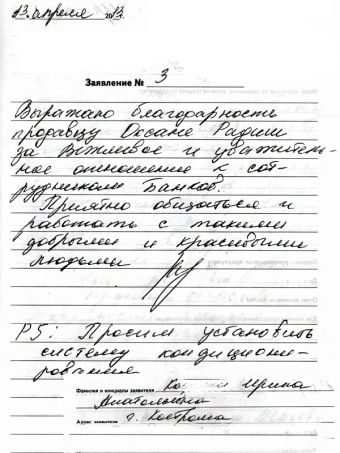 13. апреля 2013.
Заявление № 3
Выражаю благодарность
продавцу Оксане
за вежливое и уважитель-
ное отношение к сот-
рудникам Банков.
Приятно общаться и
работать с такими
добрыми и красивыми
людьми
PS: Просим установить
систему кондициони-
рования
Фамилия и инициалы заявителя Ирина
Анатольевна
Адрес заявителя г. Кострома